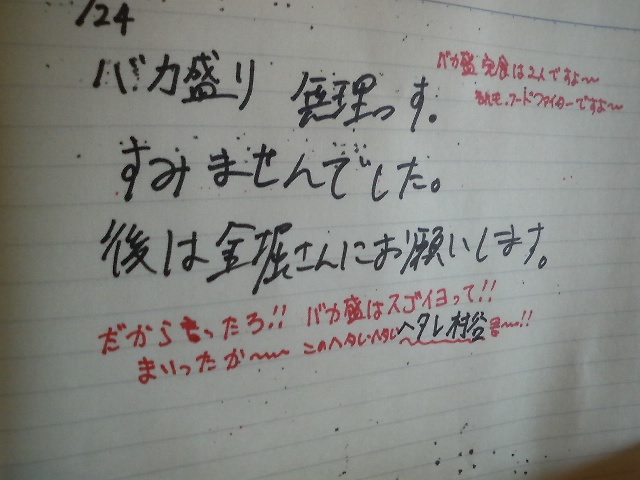 /24
バカ盛り 無理っす。
バカ盛 完食は2人ですよ〜
それも、フードファイターですよ〜
すみませんでした。
後は金堀さんにお願いします。
だから言ったろ!! バカ盛はスゴイヨって!!
まいったか〜 このヘタレ・ヘタレ ヘタレ村谷